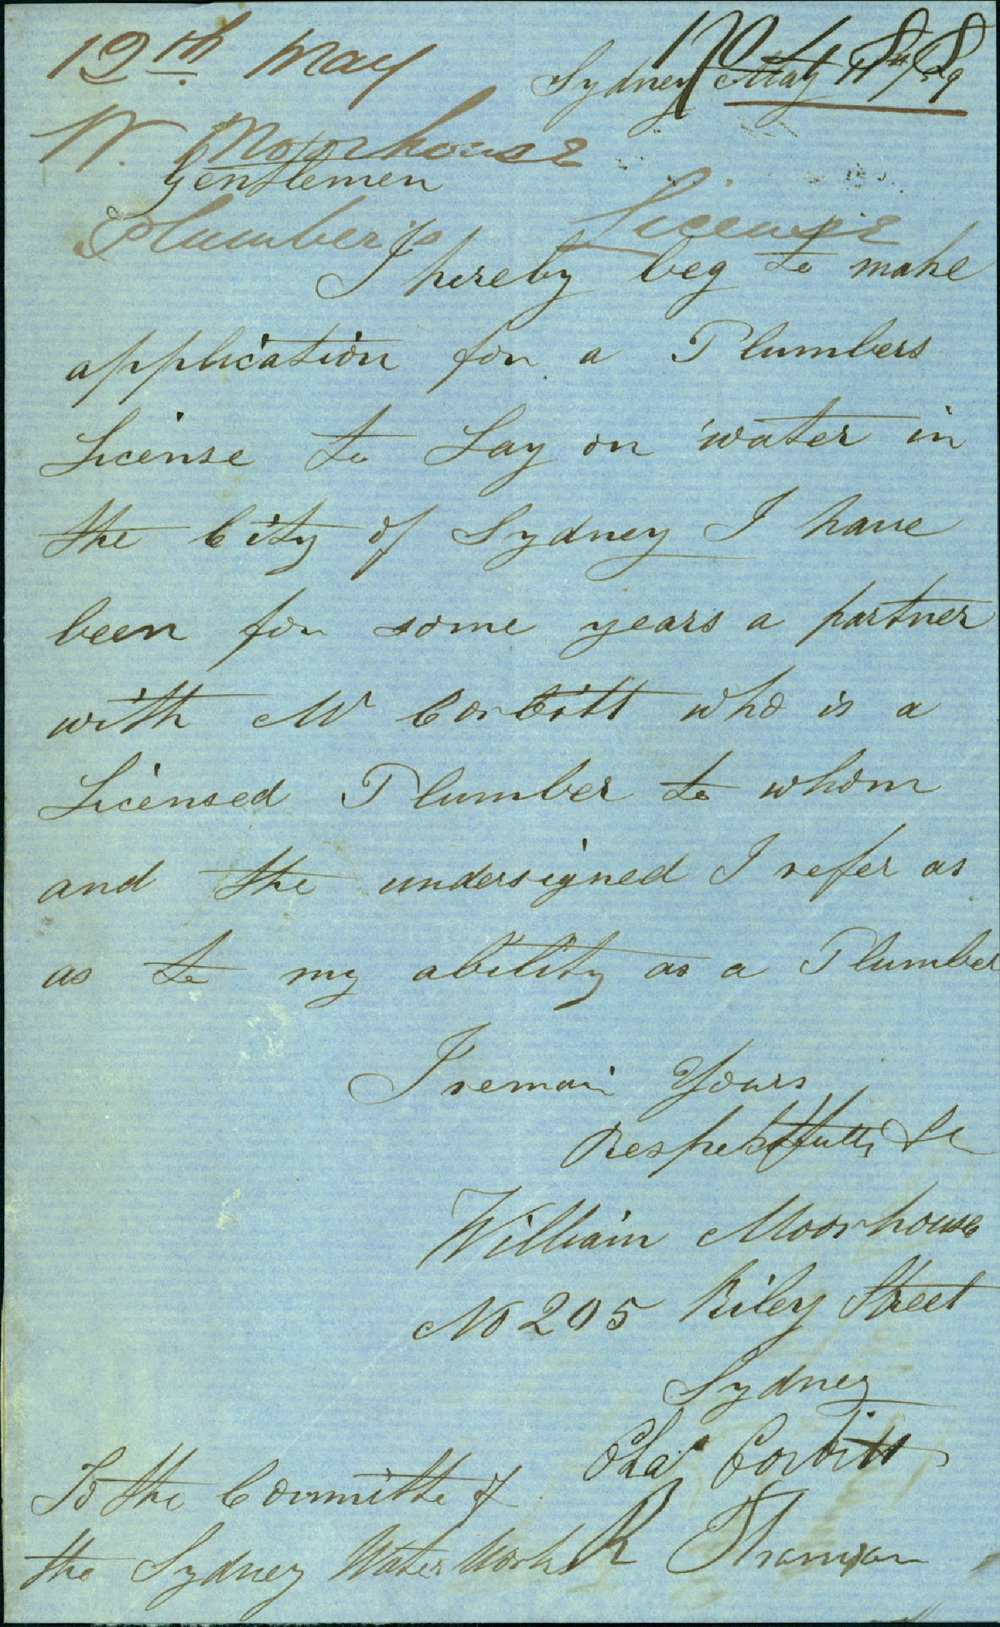 12th May
Sydney May 11th/59
W. Moorhouse
Gentlemen
Plumber's License
I hereby beg to make
application for a Plumbers
License to Lay on water in
the City of Sydney I have
been for some years a partner
with Mr Corbitt who is a
Licensed Plumber to whom
and the undersigned I refer as
as to my ability as a Plumber
I remain Yours
Respectfully &c
William Moorhouse
No 205 Riley Street
Sydney
Chas Corbitt
To the Committe of
the Sydney Water Works
R